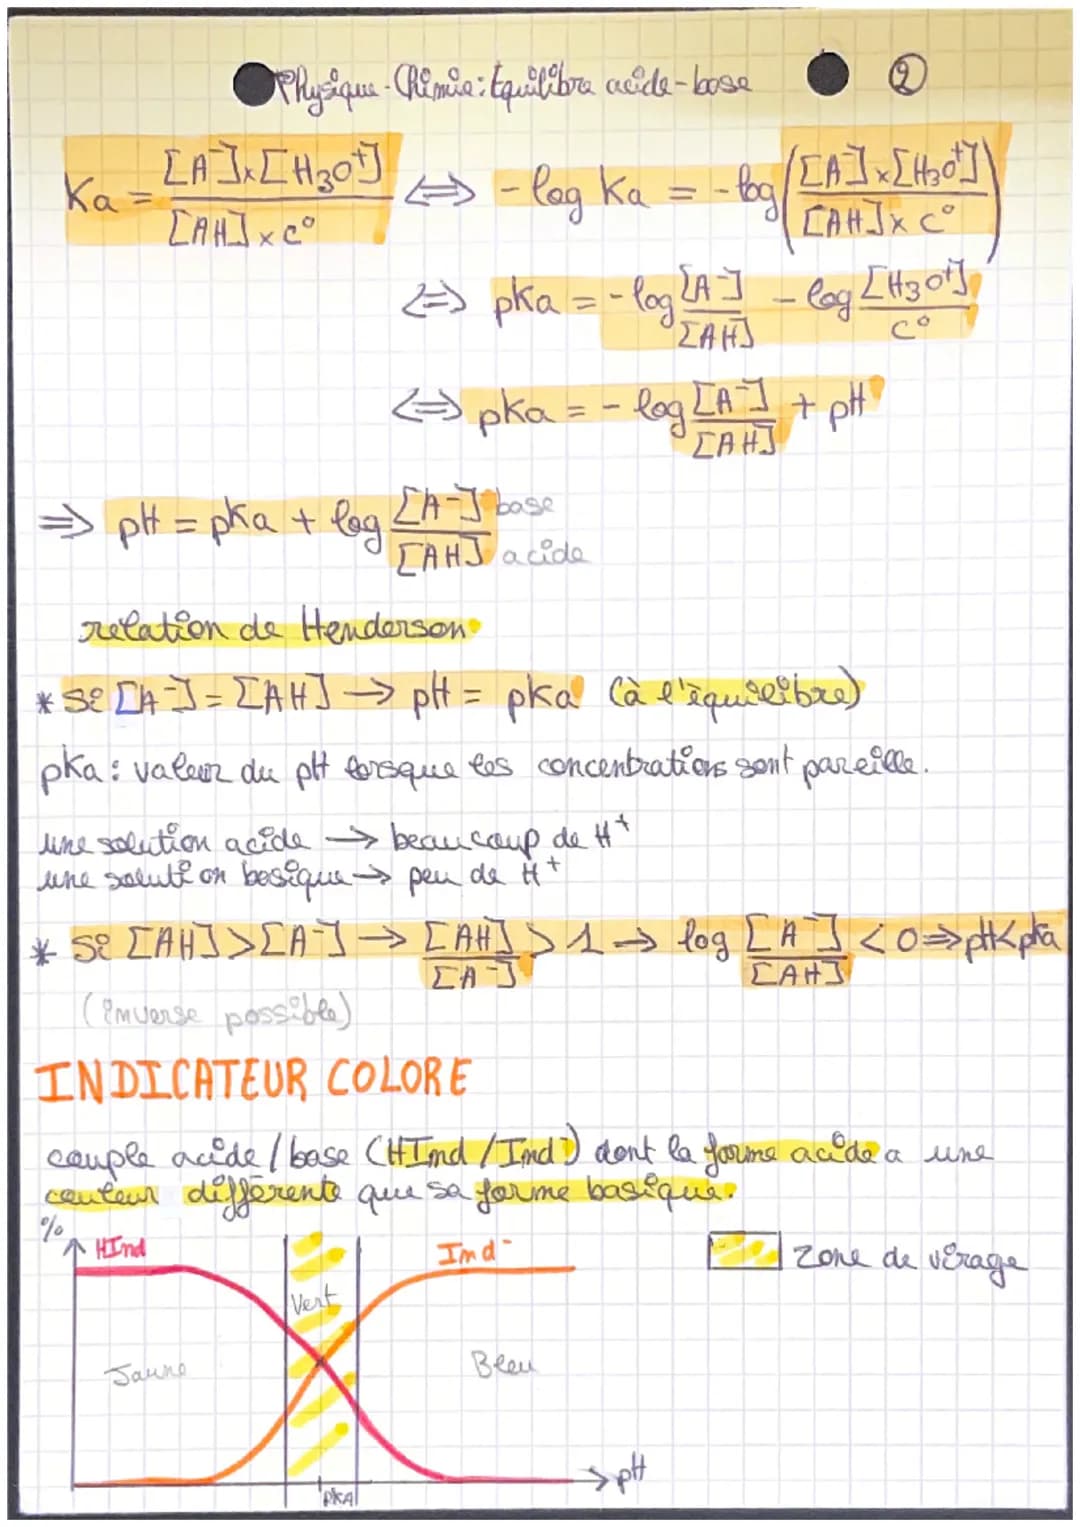 Physique-Chimie: Equilibre acide-base ②
Ka = [A⁻]x[H₃O⁺] / [AH] x c° ⇔ - log Ka = - log ([A⁻]x[H₃O⁺] / [AH] x c°)
⇔ pKa = - log [A⁻] / [AH] - log [H₃O⁺] / c°
⇔ pKa = - log [A⁻] / [AH] + pH
⇒ pH = pKa + log [A⁻] base / [AH] acide
relation de Henderson
* Si [A⁻] = [AH] → pH = pKa (à l'équilibre)
pKa : valeur du pH lorsque les concentrations sont pareille.
une solution acide → beaucoup de H⁺
une solution basique → peu de H⁺
* Si [AH] > [A⁻] → [AH] / [A⁻] > 1 → log [A⁻] / [AH] < 0 ⇒ pH < pKa
(inverse possible)
INDICATEUR COLORE
couple acide / base (HInd / Ind⁻) dont la forme acide a une
couleur différente que sa forme basique.
% HInd
Ind⁻
Zone de virage
Vert
Jaune
Bleu
pH
pKa